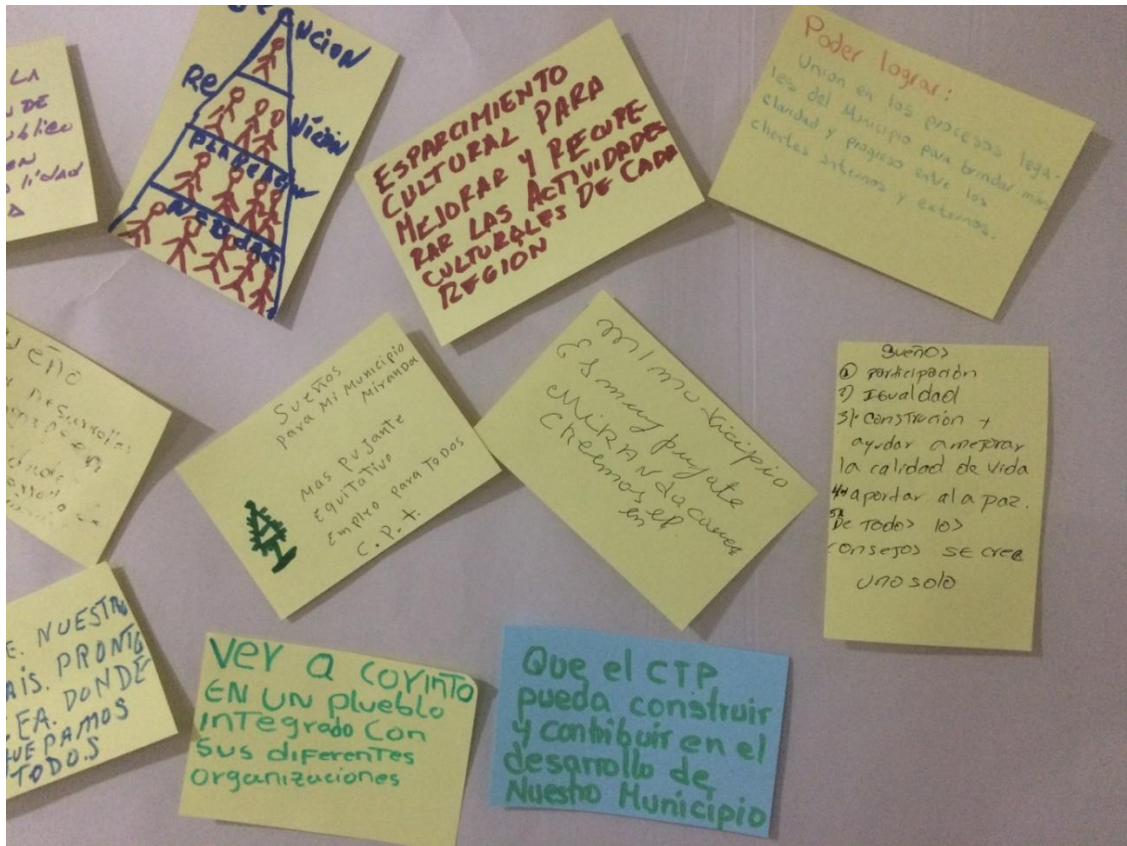 LA
DE
Publico
EN
lidad
NCION
Re
Vicion
PLANEACION
NECIDADES
ESPARCIMIENTO
CULTURAL PARA
MEJORAR Y RECUPE
RAR LAS ACTIVIDADES
CULTURALES DE CADA
REGION
Poder lograr:
Union en los procesos lega-
les del Municipio para brindar más
claridad y progreso entre los
clientes internos y externos.
Sueños
para Mi Municipio
Miranda
MAS PUJANTE
EQUITATIVO
Empleo para TODOS
C.P.t.
mi municipio
Es muy pujate
MiRANda cauca
en
sueños
1) participación
2) Igualdad
3) Construción y
ayudar a mejorar
la calidad de vida
4) apordar al a paz.
5) De Todos los
consejos se cree
uno solo
E. NUESTRO
AÍS. PRONTO
EA. DONDE
UEPAMOS
TODO.S
ver a corinto
EN UN plueblo
inTegrado Con
Sus diFerenTes
organizaciones
Que el CTP
pueda construir
y contribuir en el
desarrollo de
Nuestro Municipio